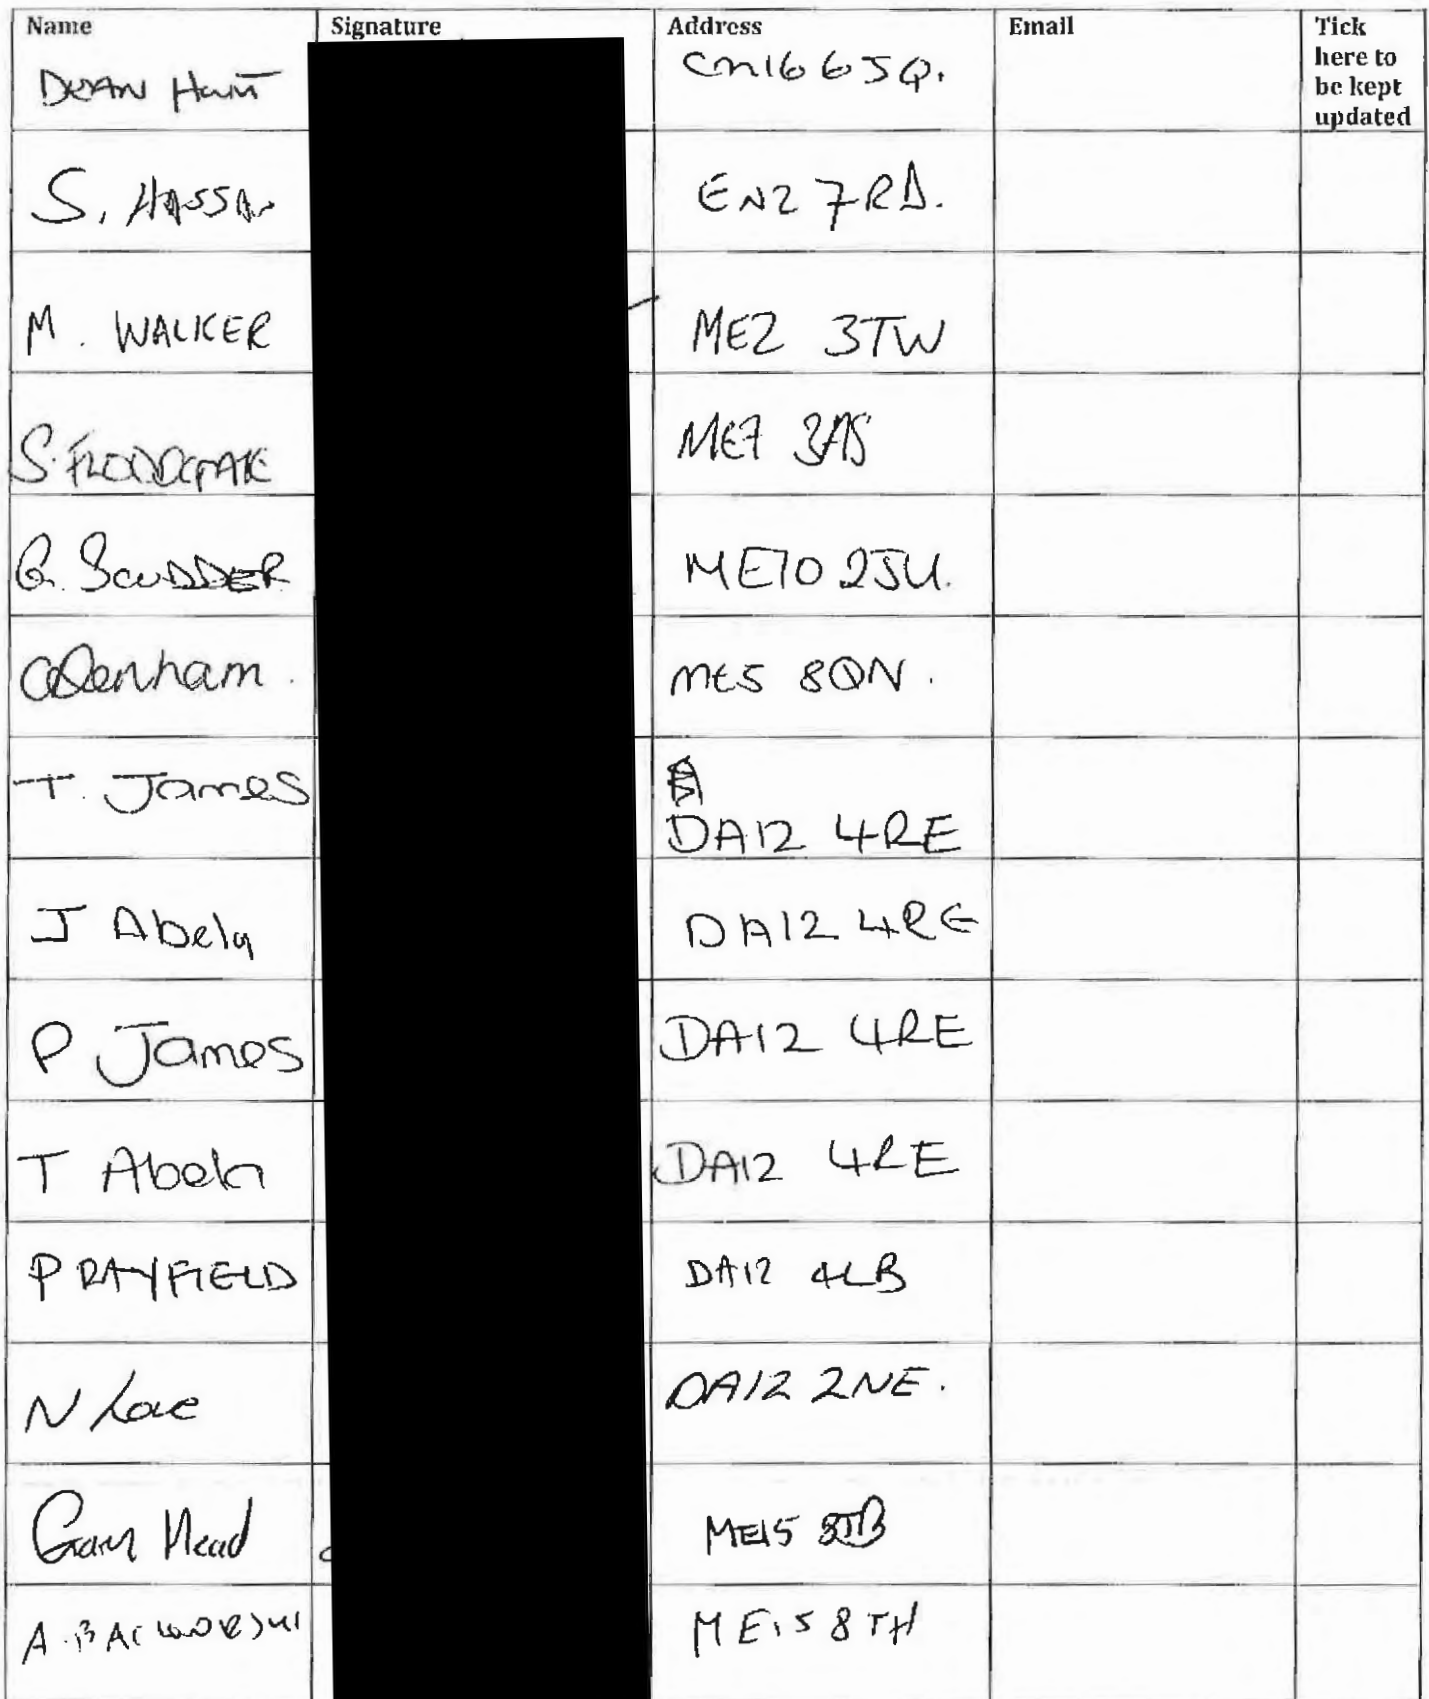 Name Signature Address Email Tick here to be kept updated
DEAN Hunt CM16 6JQ.
S. HASSAN EN2 7RD.
M. WALKER ME2 3TW
S. FLOODGATE ME7 3AS
G. SCUDDER ME10 2JU.
Denham. ME5 8QN.
T. James DA12 4RE
J Abela DA12 4RE
P James DA12 4RE
T Abela DA12 4RE
P RAYFIELD DA12 4LB
N Love DA12 2NE.
Gary Mead ME15
A. ME15 8TH